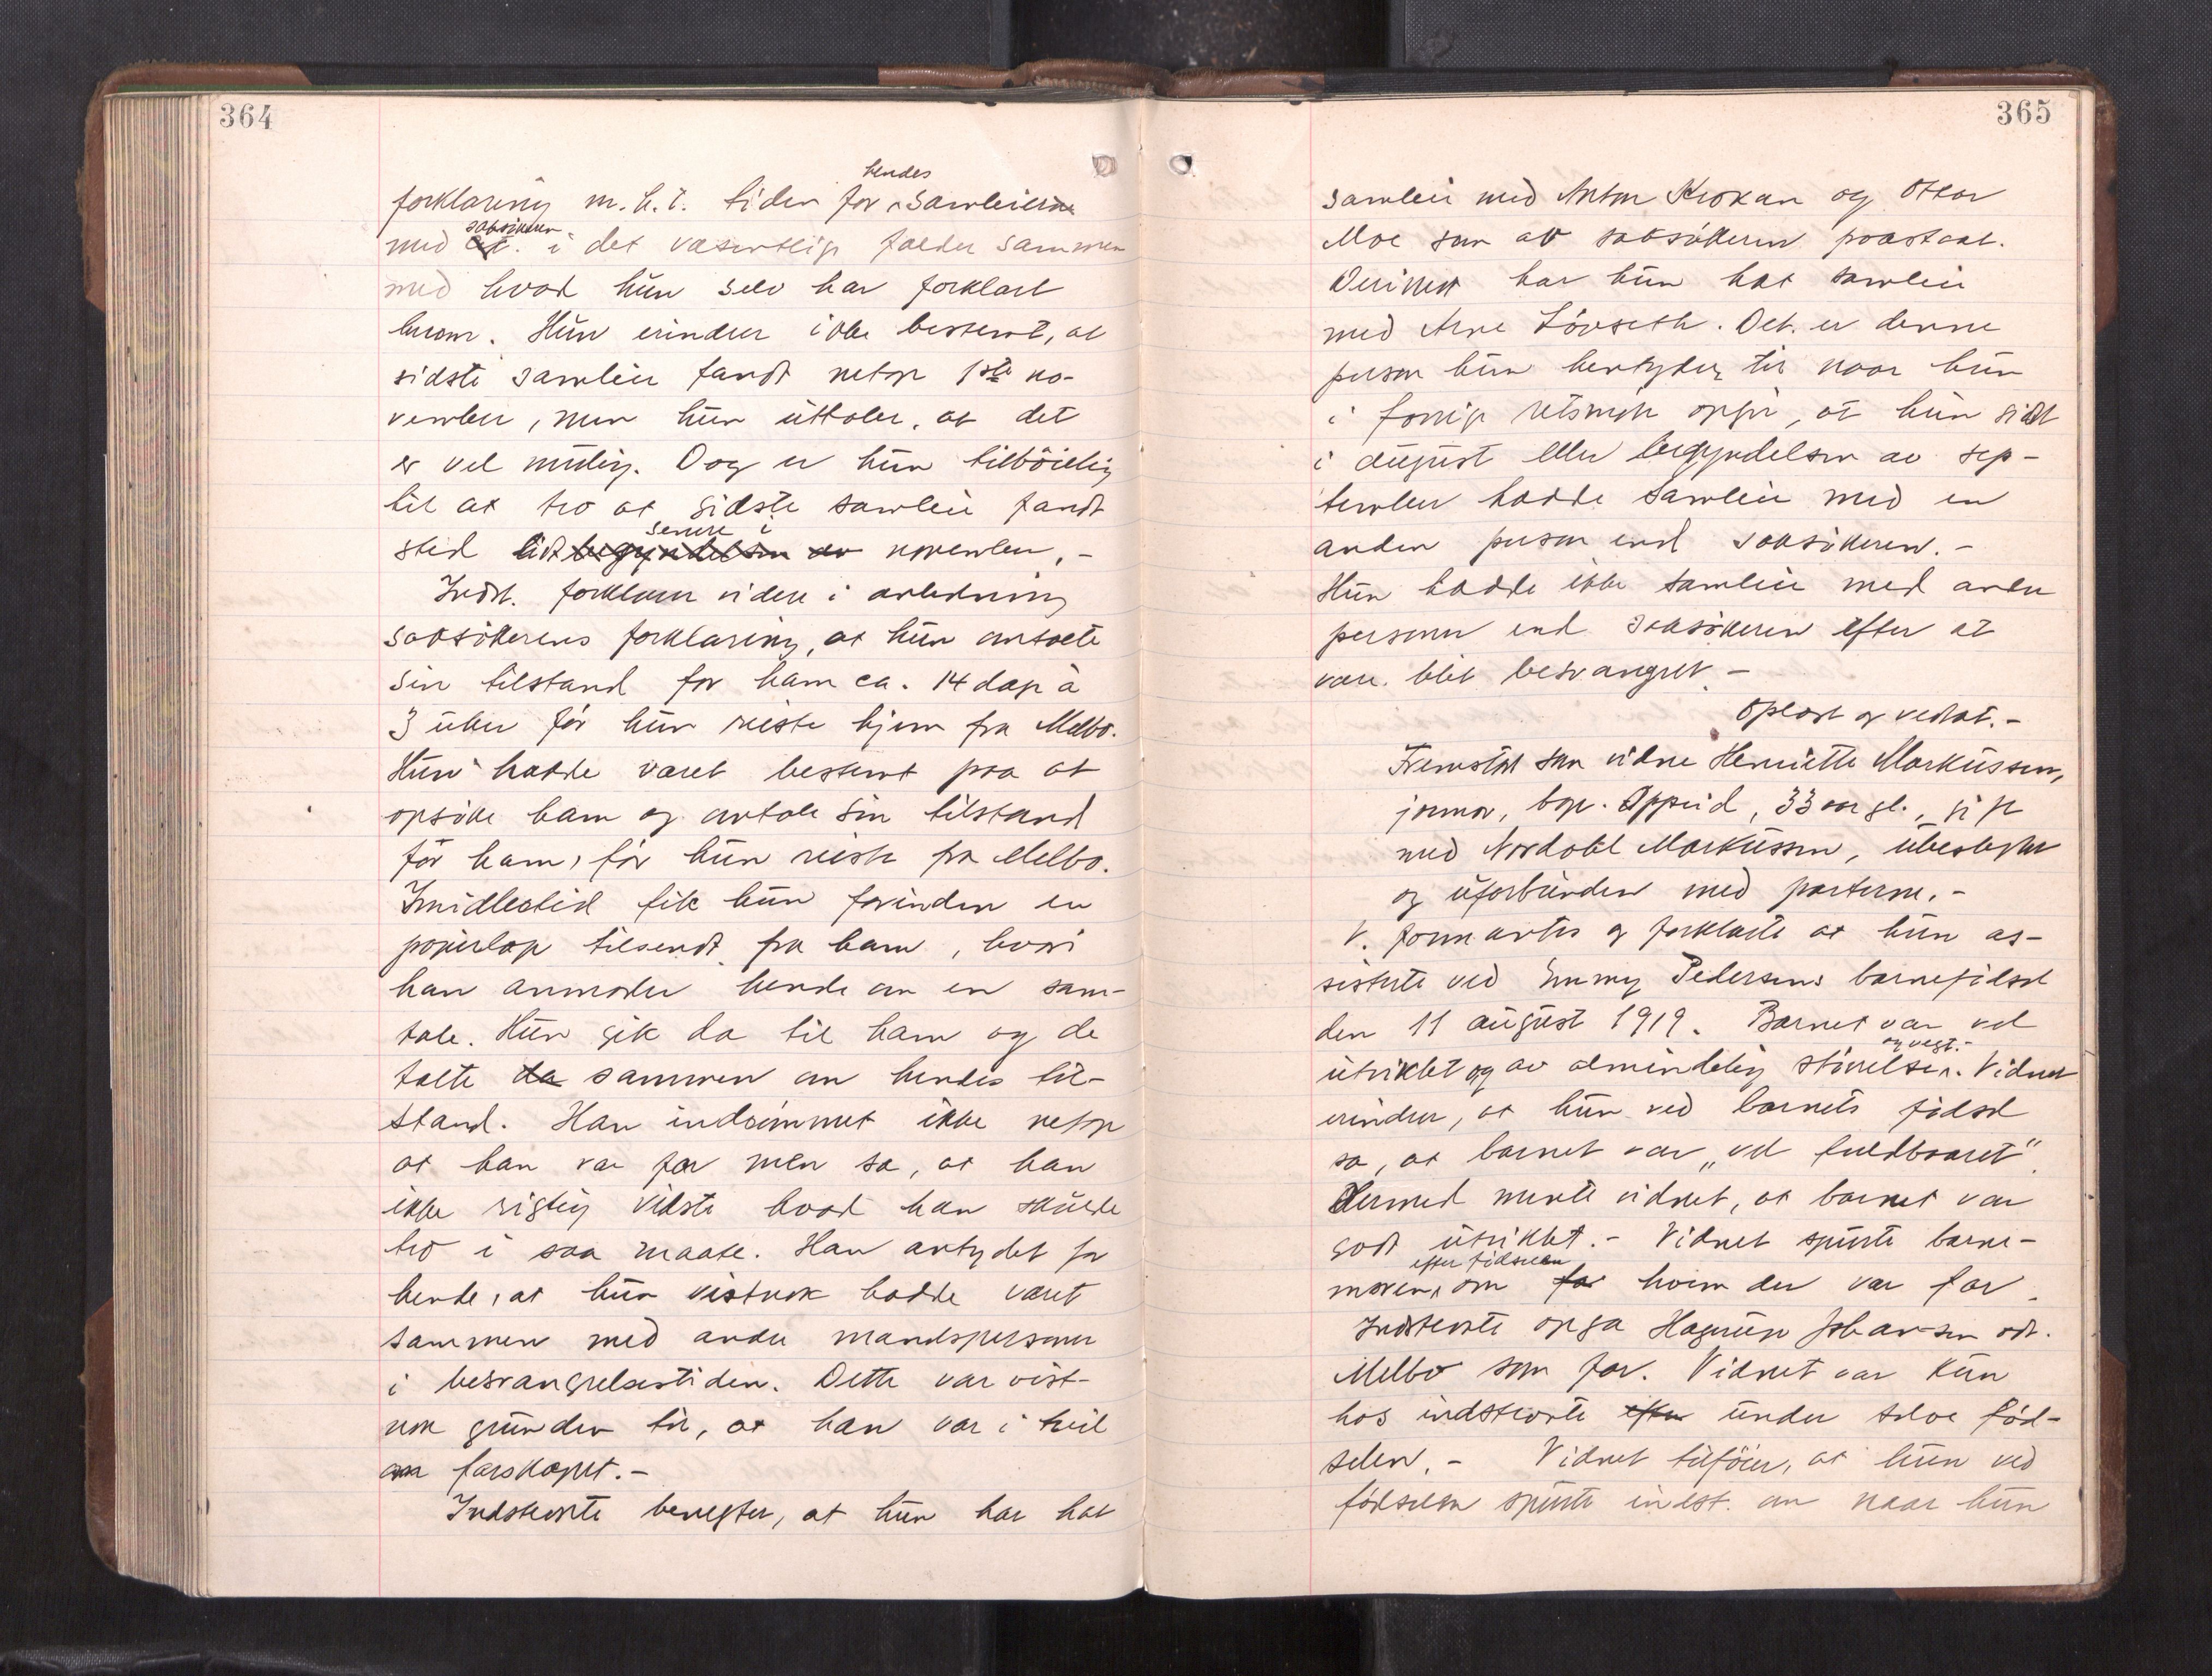 364
forklaring m.h.t. tiden for hendes samleier
med saksøkeren i det væsentlige falder sammen
med hvad hun selv har forklart
herom. Hun erindrer ikke bestemt, at
sidste samleie fandt netop 1ste no-
vember, men hun uttaler, at det
er vel mulig. Dog er hun tilbøielig
til at tro at sidste samleie fandt
sted lidt begyndelsen av senere i november.-
Indst. forklarer videre i anledning
saksøkerens forklaring, at hun omtalte
sin tilstand for ham ca. 14 dage à
3 uker før hun reiste hjem fra Melbo.
Hun hadde været bestemt paa at
opsøke ham og omtale sin tilstand
før ham, før hun reiste fra Melbo.
Imidlertid fik hun forinden en
papirlap tilsendt fra ham, hvori
han anmoder hende om en sam-
tale. Hun gik da til ham og de
talte da sammen om hendes til-
stand. Han indrømmet ikke netop
at han var far men sa, at han
ikke rigtig vidste hvad han skulde
tro i saa maate. Han antydet for
hende, at hun vistnok hadde været
sammen med andre mandspersoner
i besvangrelsestiden. Dette var vist-
nok grunden til, at han var i tvil
om farskapet.-
Indstevnte benegter, at hun har hat
365
samleie med Anton Krokan og Ottar
Moe som av saksøkeren paastaat.
Derimot har hun hat samleie
med Arne Løvseth. Det er denne
person hun hentyder til naar hun
i forrige retsmøte opgir, at hun sidst
i august eller begyndelsen av sep-
tember hadde samleie med en
anden person end saksøkeren.-
Hun hadde ikke samleie med andre
personer end saksøkeren efter at
være blit besvangret.-
Oplæst og vedtat.-
Fremstod som vidne Henriette Markussen,
jormor, bop. Oppeid, 33 aar gl., gift
med Nordahl Markussen, ubeslegtet
og uforbunden med parterne.-
V. formantes og forklarte at hun as-
sisterte ved Emmy Pedersens barnefødsel
den 11 august 1919. Barnet var vel
utviklet og av almindelig størrelse og vegt.- Vidnet
erindrer, at hun ved barnets fødsel
sa, at barnet var "vel fuldbaaret".
Dermed mente vidnet, at barnet var
godt utviklet.- Vidnet spurte barne-
moren efter fødselen om far hvem der var far.
Indstevnte opga Hagerup Johansen adr.
Melbo som far. Vidnet var kun
hos indstevnte efter under selve fød-
selen.- Vidnet tilføier, at hun ved
fødselen spurte indst. om naar hun